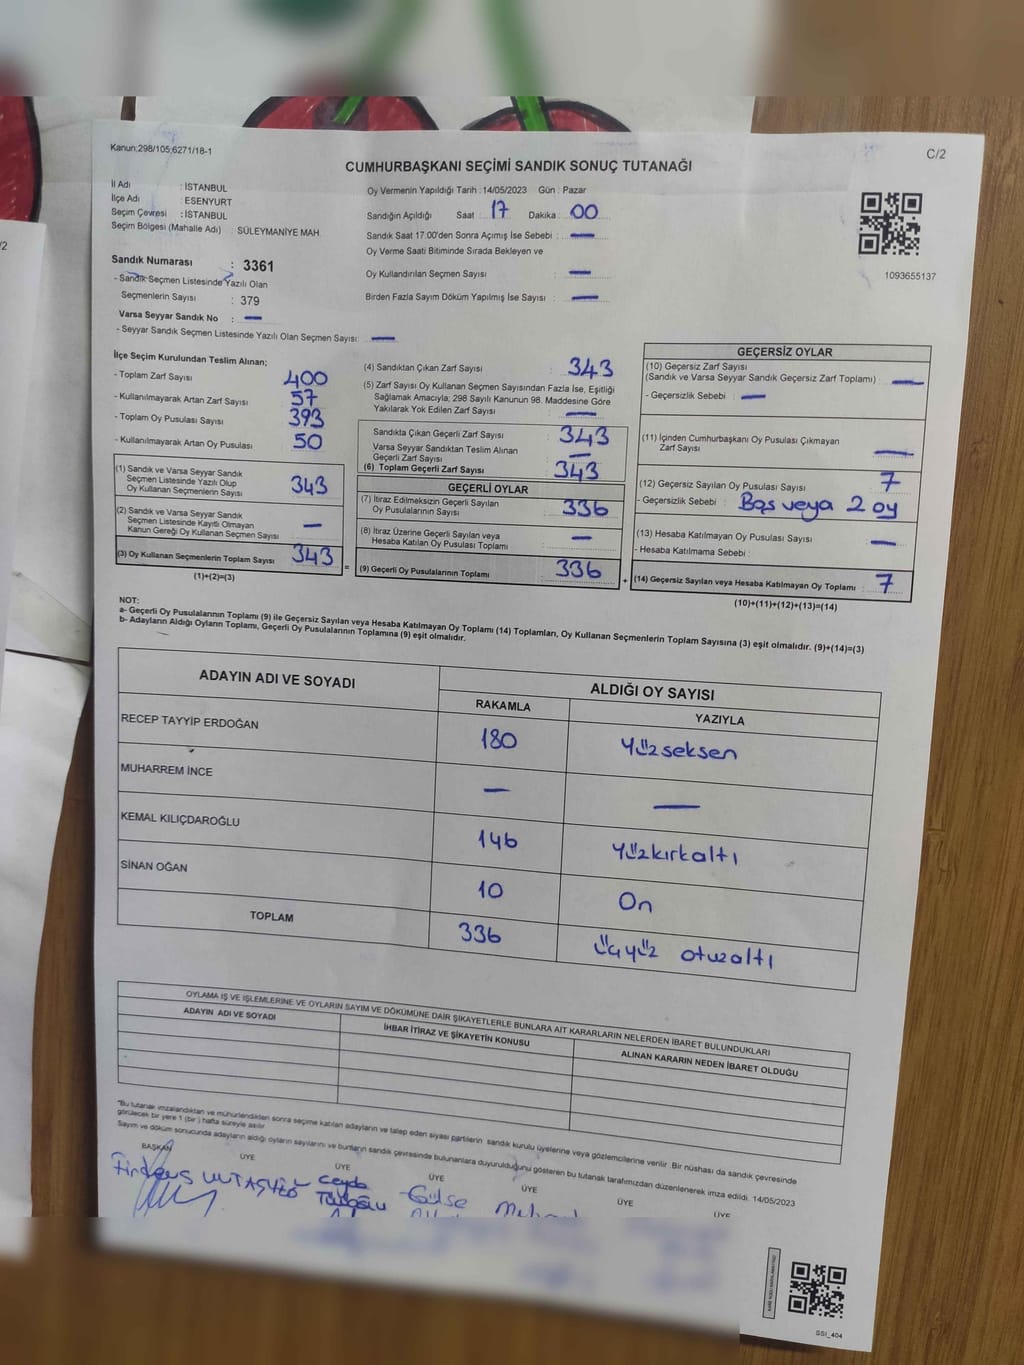 Kanun:298/105;6271/18-1
C/2
CUMHURBAŞKANI SEÇİMİ SANDIK SONUÇ TUTANAĞI
İl Adı : İSTANBUL
İlçe Adı : ESENYURT
Seçim Çevresi : İSTANBUL
Seçim Bölgesi (Mahalle Adı) : SÜLEYMANİYE MAH
Sandık Numarası : 3361
- Sandık Seçmen Listesinde Yazılı Olan
Seçmenlerin Sayısı : 379
Varsa Seyyar Sandık No : —
- Seyyar Sandık Seçmen Listesinde Yazılı Olan Seçmen Sayısı: —
Oy Vermenin Yapıldığı Tarih : 14/05/2023 Gün : Pazar
Sandığın Açıldığı Saat : 17 Dakika : 00
Sandık Saat 17:00'den Sonra Açımış İse Sebebi : —
Oy Verme Saati Bitiminde Sırada Bekleyen ve
Oy Kullandırılan Seçmen Sayısı : —
Birden Fazla Sayım Döküm Yapılmış İse Sayısı : —
1093655137
İlçe Seçim Kurulundan Teslim Alınan;
- Toplam Zarf Sayısı : 400
- Kullanılmayarak Artan Zarf Sayısı : 57
- Toplam Oy Pusulası Sayısı : 393
- Kullanılmayarak Artan Oy Pusulası : 50
(1) Sandık ve Varsa Seyyar Sandık
Seçmen Listesinde Yazılı Olup
Oy Kullanan Seçmenlerin Sayısı : 343
(2) Sandık ve Varsa Seyyar Sandık
Seçmen Listesinde Kayıtlı Olmayan
Kanun Gereği Oy Kullanan Seçmen Sayısı : —
(3) Oy Kullanan Seçmenlerin Toplam Sayısı : 343
(1)+(2)=(3)
(4) Sandıktan Çıkan Zarf Sayısı : 343
(5) Zarf Sayısı Oy Kullanan Seçmen Sayısından Fazla İse, Eşitliği
Sağlamak Amacıyla; 298 Sayılı Kanunun 98. Maddesine Göre
Yakılarak Yok Edilen Zarf Sayısı : —
Sandıkta Çıkan Geçerli Zarf Sayısı : 343
Varsa Seyyar Sandıktan Teslim Alınan
Geçerli Zarf Sayısı : —
(6) Toplam Geçerli Zarf Sayısı : 343
GEÇERLİ OYLAR
(7) İtiraz Edilmeksizin Geçerli Sayılan
Oy Pusulalarının Sayısı : 336
(8) İtiraz Üzerine Geçerli Sayılan veya
Hesaba Katılan Oy Pusulası Toplamı : —
= (9) Geçerli Oy Pusulalarının Toplamı : 336 +
GEÇERSİZ OYLAR
(10) Geçersiz Zarf Sayısı
(Sandık ve Varsa Seyyar Sandık Geçersiz Zarf Toplamı) : —
- Geçersizlik Sebebi : —
(11) İçinden Cumhurbaşkanı Oy Pusulası Çıkmayan
Zarf Sayısı : —
(12) Geçersiz Sayılan Oy Pusulası Sayısı : 7
- Geçersizlik Sebebi : Boş veya 2 oy
(13) Hesaba Katılmayan Oy Pusulası Sayısı : —
- Hesaba Katılmama Sebebi :
(14) Geçersiz Sayılan veya Hesaba Katılmayan Oy Toplamı : 7
(10)+(11)+(12)+(13)=(14)
NOT:
a- Geçerli Oy Pusulalarının Toplamı (9) ile Geçersiz Sayılan veya Hesaba Katılmayan Oy Toplamı (14) Toplamları, Oy Kullanan Seçmenlerin Toplam Sayısına (3) eşit olmalıdır. (9)+(14)=(3)
b- Adayların Aldığı Oyların Toplamı, Geçerli Oy Pusulalarının Toplamına (9) eşit olmalıdır.
ADAYIN ADI VE SOYADI ALDIĞI OY SAYISI
RAKAMLA YAZIYLA
RECEP TAYYİP ERDOĞAN 180 Yüzseksen
MUHARREM İNCE — —
KEMAL KILIÇDAROĞLU 146 Yüzkırkaltı
SİNAN OĞAN 10 On
TOPLAM 336 Üçyüz otuzaltı
OYLAMA İŞ VE İŞLEMLERİNE VE OYLARIN SAYIM VE DÖKÜMÜNE DAİR ŞİKAYETLERLE BUNLARA AİT KARARLARIN NELERDEN İBARET BULUNDUKLARI
ADAYIN ADI VE SOYADI İHBAR İTİRAZ VE ŞİKAYETİN KONUSU ALINAN KARARIN NEDEN İBARET OLDUĞU
*Bu tutanak imzalandıktan ve mühürlendikten sonra seçime katılan adayların ve talep eden siyasi partilerin sandık kurulu üyelerine veya gözlemcilerine verilir. Bir nüshası da sandık çevresinde
görülecek bir yere 1 (bir) hafta süreyle asılır.
Sayım ve döküm sonucunda adayların aldığı oyların sayılarını ve bunların sandık çevresinde bulunanlara duyurulduğunu gösteren bu tutanak tarafımızdan düzenlenerek imza edildi. 14/05/2023
BAŞKAN ÜYE ÜYE ÜYE ÜYE ÜYE ÜYE
Firdevs Ceyda Gülse
SSI_404